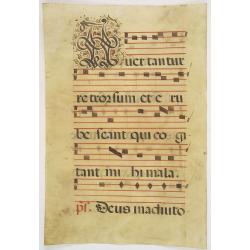 Auertantur
retrorsum et eru
bescant qui cogi
tant mihi mala.
ps. Deus in adiuto